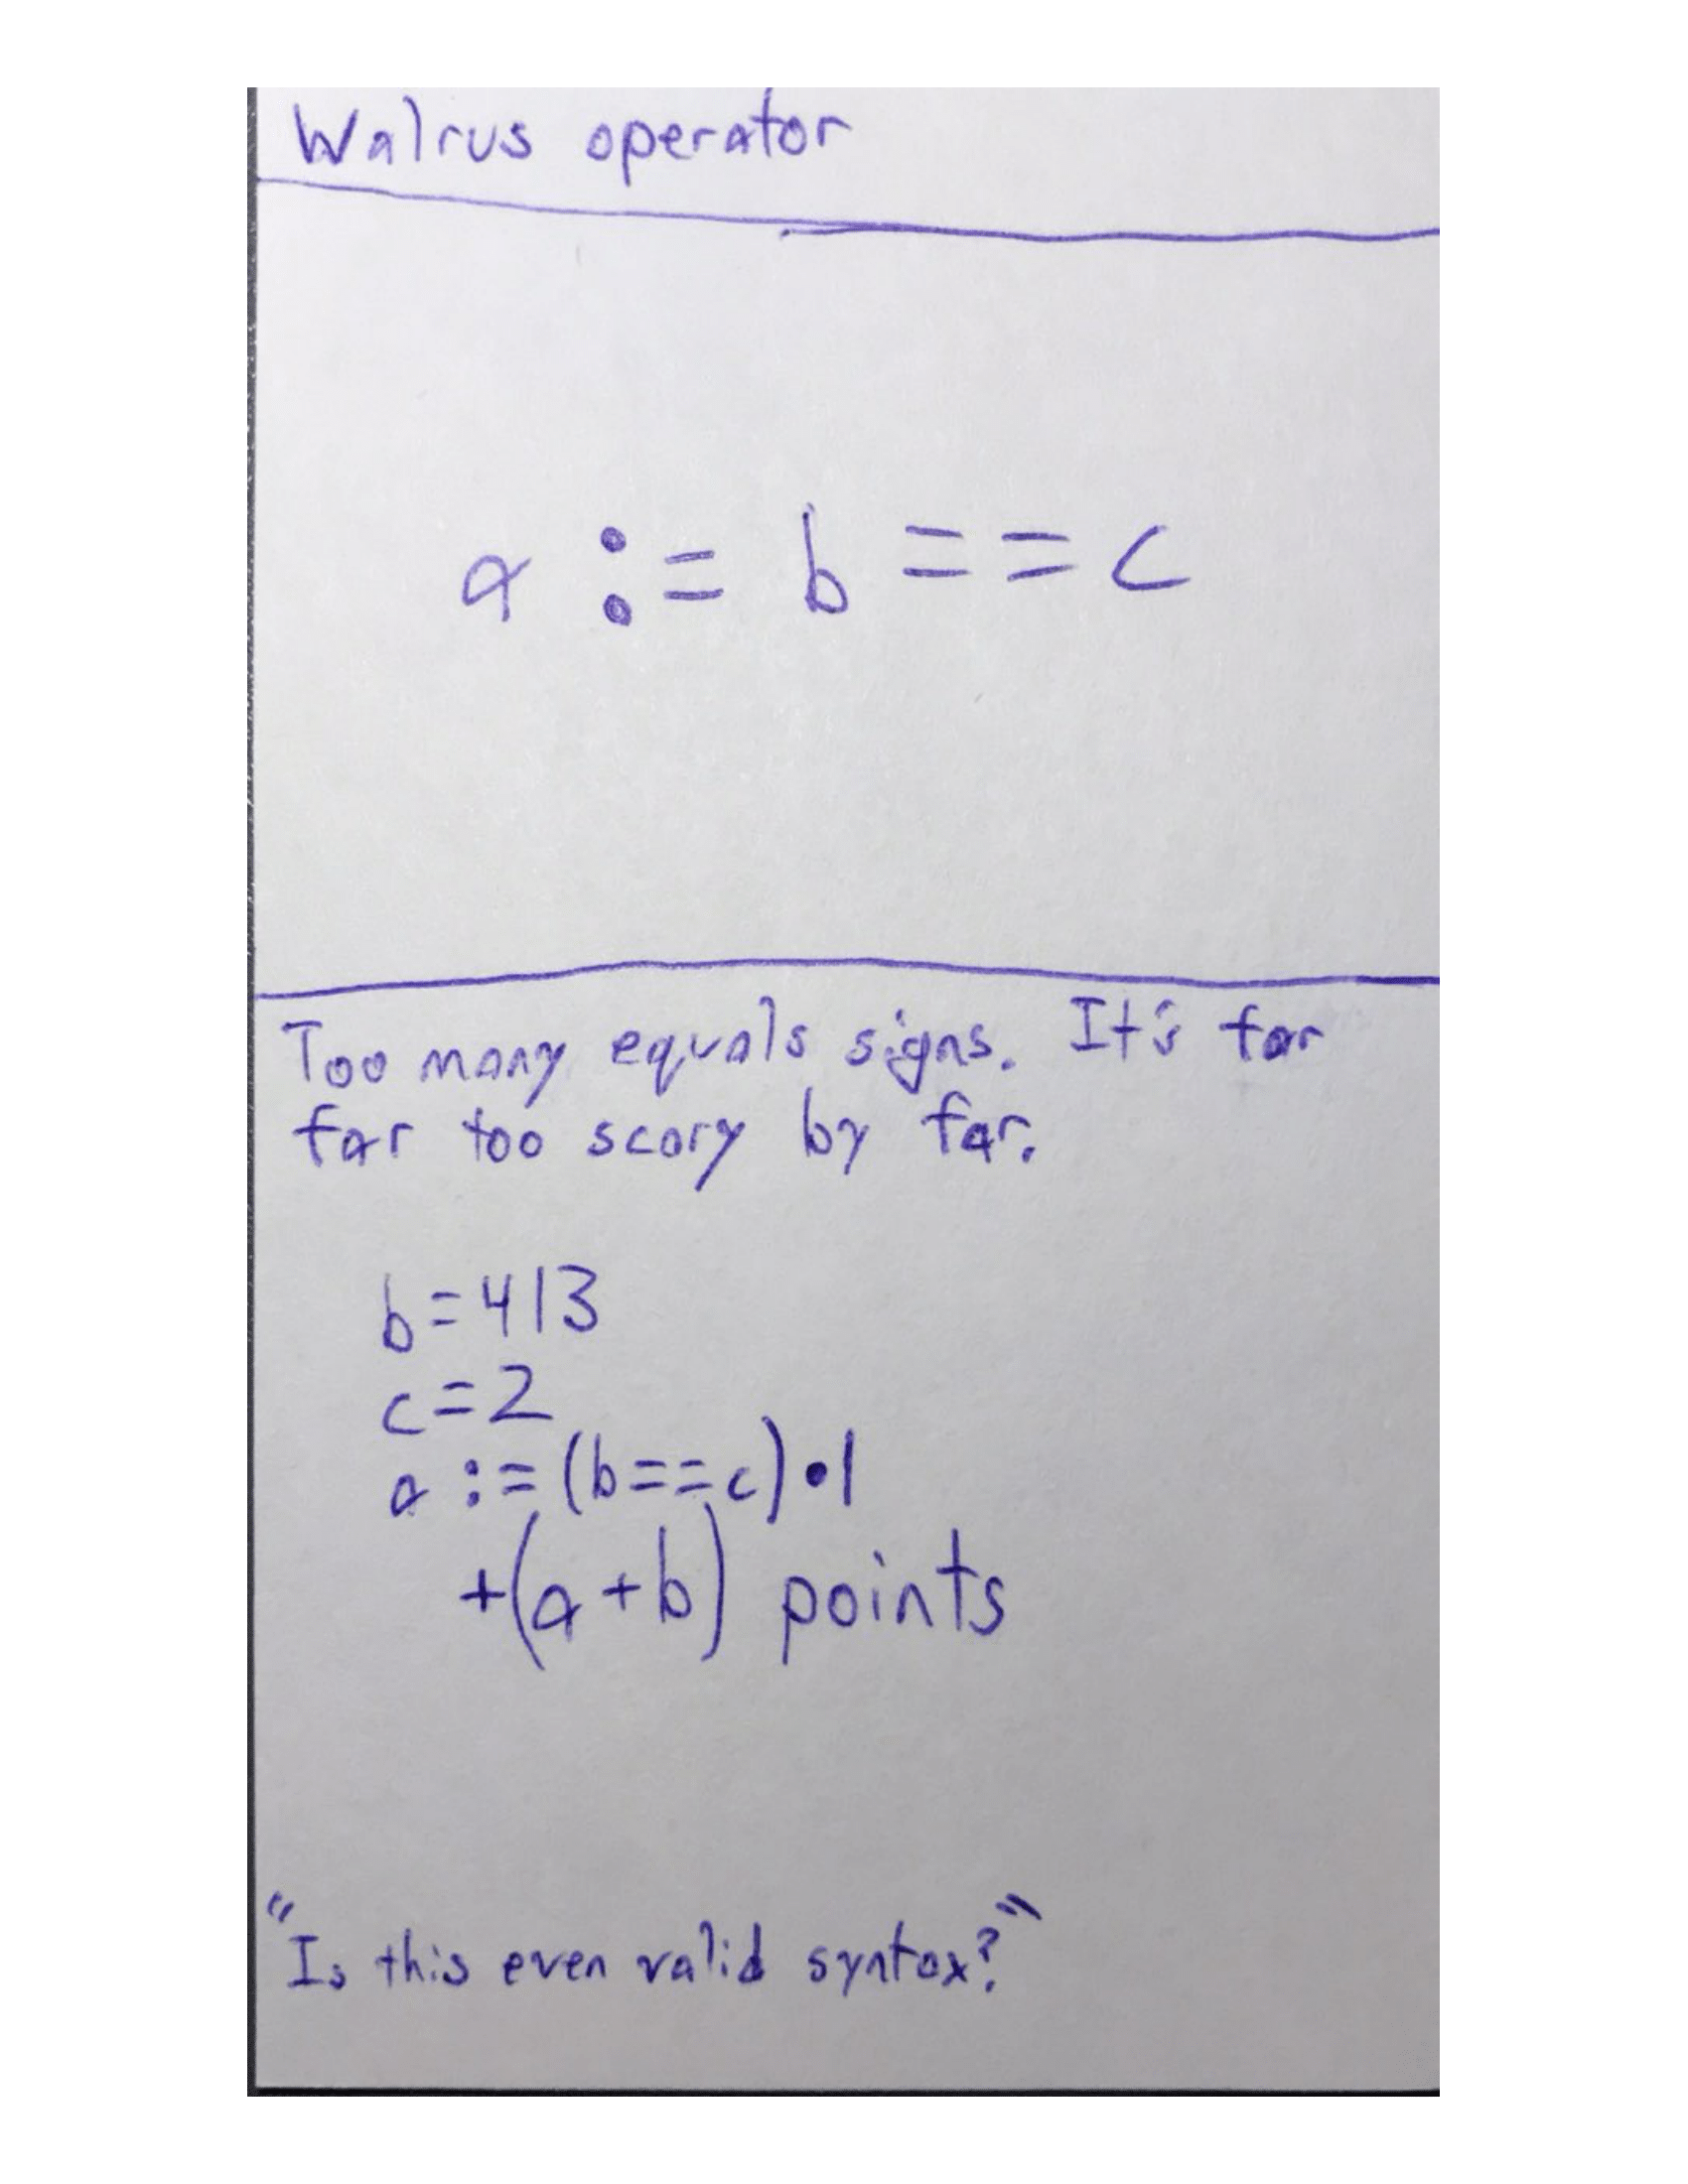 Walrus operator
a := b == c
Too many equals signs. It's far
far too scary by far.
b=413
c=2
a :=(b==c)•1
+(a+b) points
"Is this even valid syntax?"